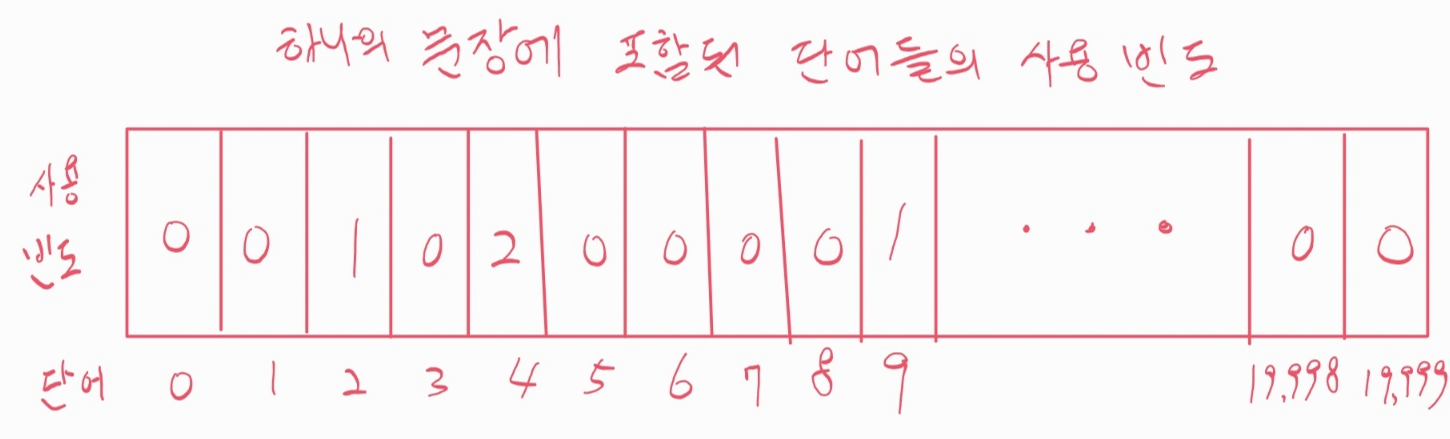 하나의 문장에 포함된 단어들의 사용 빈도
사용
빈도
0 0 1 0 2 0 0 0 0 1 . . . 0 0
단어 0 1 2 3 4 5 6 7 8 9 19,998 19,999